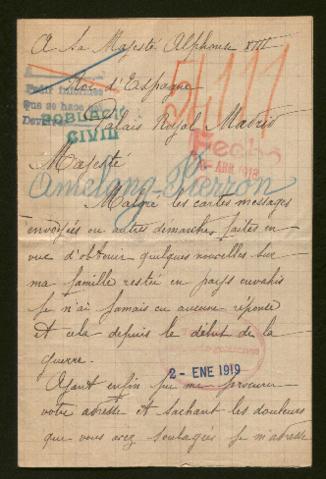 A Sa Majesté Alphonse XIII
Roi d'Espagne
54111
Pedir informes
Que se hace
POBLACIÓ
CIVIL
Palais Royal Madrid
Fecha
ABR 1918
Majesté
Amelang-Pierron
Malgré les cartes messages
envoyées ou autres démarches faites en
vue d'obtenir quelques nouvelles sur
ma famille restée en pays envahis
je n'ai jamais eu aucune réponse
et cela depuis le début de la
guerre.
2 - ENE 1919
Ayant enfin pu me procurer
votre adresse et sachant les douleurs
que vous avez soulagées je m'adresse